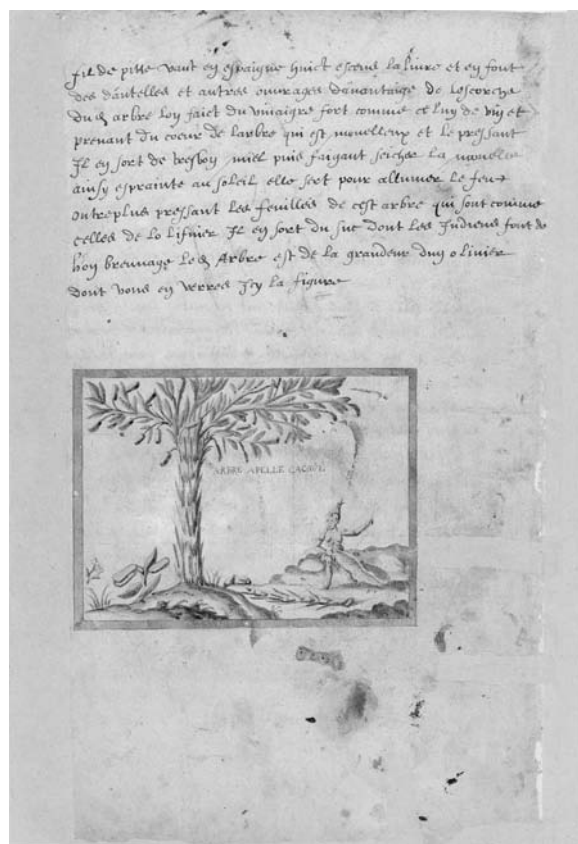 fil de pitte vaut en espaigne huict escus la livre et en font
des dantelles et autres ouvrages davantaige de lescorche
dud arbre lon faict du vinaigre fort comme celuy de vin et
prenant du coeur de larbre qui est mouelleux et le pressant
Il en sort de tresbon miel puis faizant seicher la mouelle
ainsy esprainte au soleil elle sert pour allumer le feu
outreplus pressant les feuilles de cest arbre qui sont comme
celles de lolifvier Il en sort du suc dont les Indiens font de
bon breuvage led Arbre est de la grandeur dun olivier
dont vous en verres Icy la figure
ARBRE APELLE CACAVE